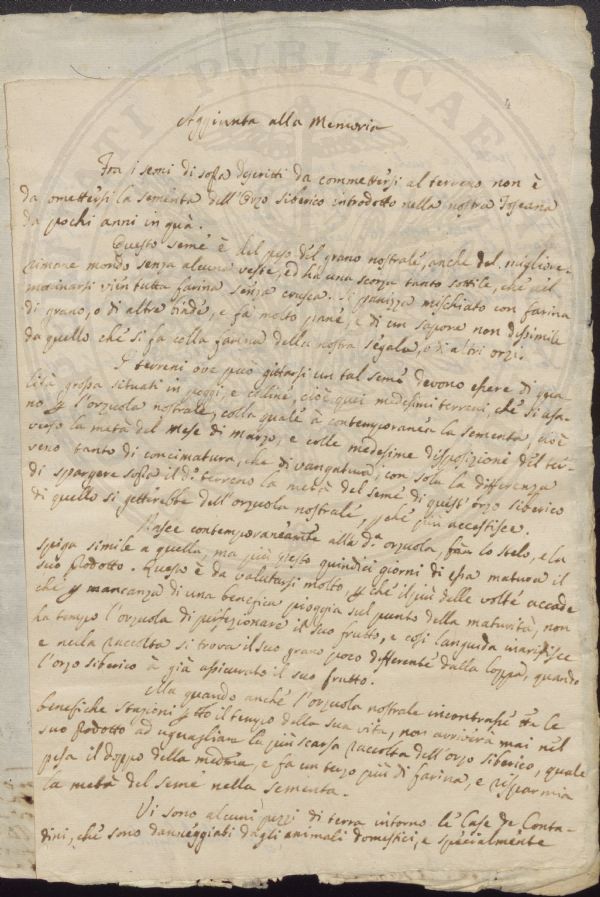 4
Aggiunta alla Memoria
Fra i semi di sopra descritti da commettersi al terreno non è
da omettersi la sementa dell'Orzo Siberico introdotto nella nostra Toscana
da pochi anni in quà.
Questo seme è del peso del grano nostrale, anche del migliore.
rimane mondo senza alcuna veste, ed ha una scorza tanto sottile, che nel
macinarsi vien tutta farina senza crusca. Si panizza mischiato con farina
di grano, o di altre biade, e fa molto pane, e di un sapore non dissimile
da quello che si fa colla farina della nostra segala, o di altri orzi.
I terreni ove può gettarsi un tal seme devono essere di qua-
lità grossa situati in poggi, e colline, cioè quei medesimi terreni, che si usa-
no p l'orzuola nostrale, colla quale à contemporanea la sementa, cioè
verso la metà del mese di marzo, e colle medesime disposizioni del ter-
reno tanto di concimatura, che di vangatura, con sola la differenza
di spargere sopra il d.º terreno la metà del seme di quest'orzo siberico
di quello si getterebbe dell'orzuola nostrale, pché più accestisce.
Nasce contemporaneamte alla d.ª orzuola, fà lo stelo, e la
spiga simile a quella, ma più presto quindici giorni di essa matura il
suo Prodotto. Questo è da valutarsi molto, p ché il più delle volte accade
che p mancanza di una benefica pioggia sul punto della maturità, non
ha tempo l'orzuola di perfezionare il suo frutto, e così languida inaridisce
e nella raccolta si trova il suo grano poco differente dalla loppa, quando
l'orzo siberico à già assicurato il suo frutto.
Ma quando anche l'orzuola nostrale incontrasse le
benefiche stagioni p tto il tempo della sua vita, non arriverà mai nel
suo Prodotto ad uguagliare la più scarsa raccolta dell'orzo siberico, quale
pesa il doppo della medma, e fa un terzo più di farina, e risparmia
la metà del seme nella sementa.
Vi sono alcuni pezzi di terra intorno le Case de Conta-
dini, che sono danneggiati dagli animali domestici, e specialmente